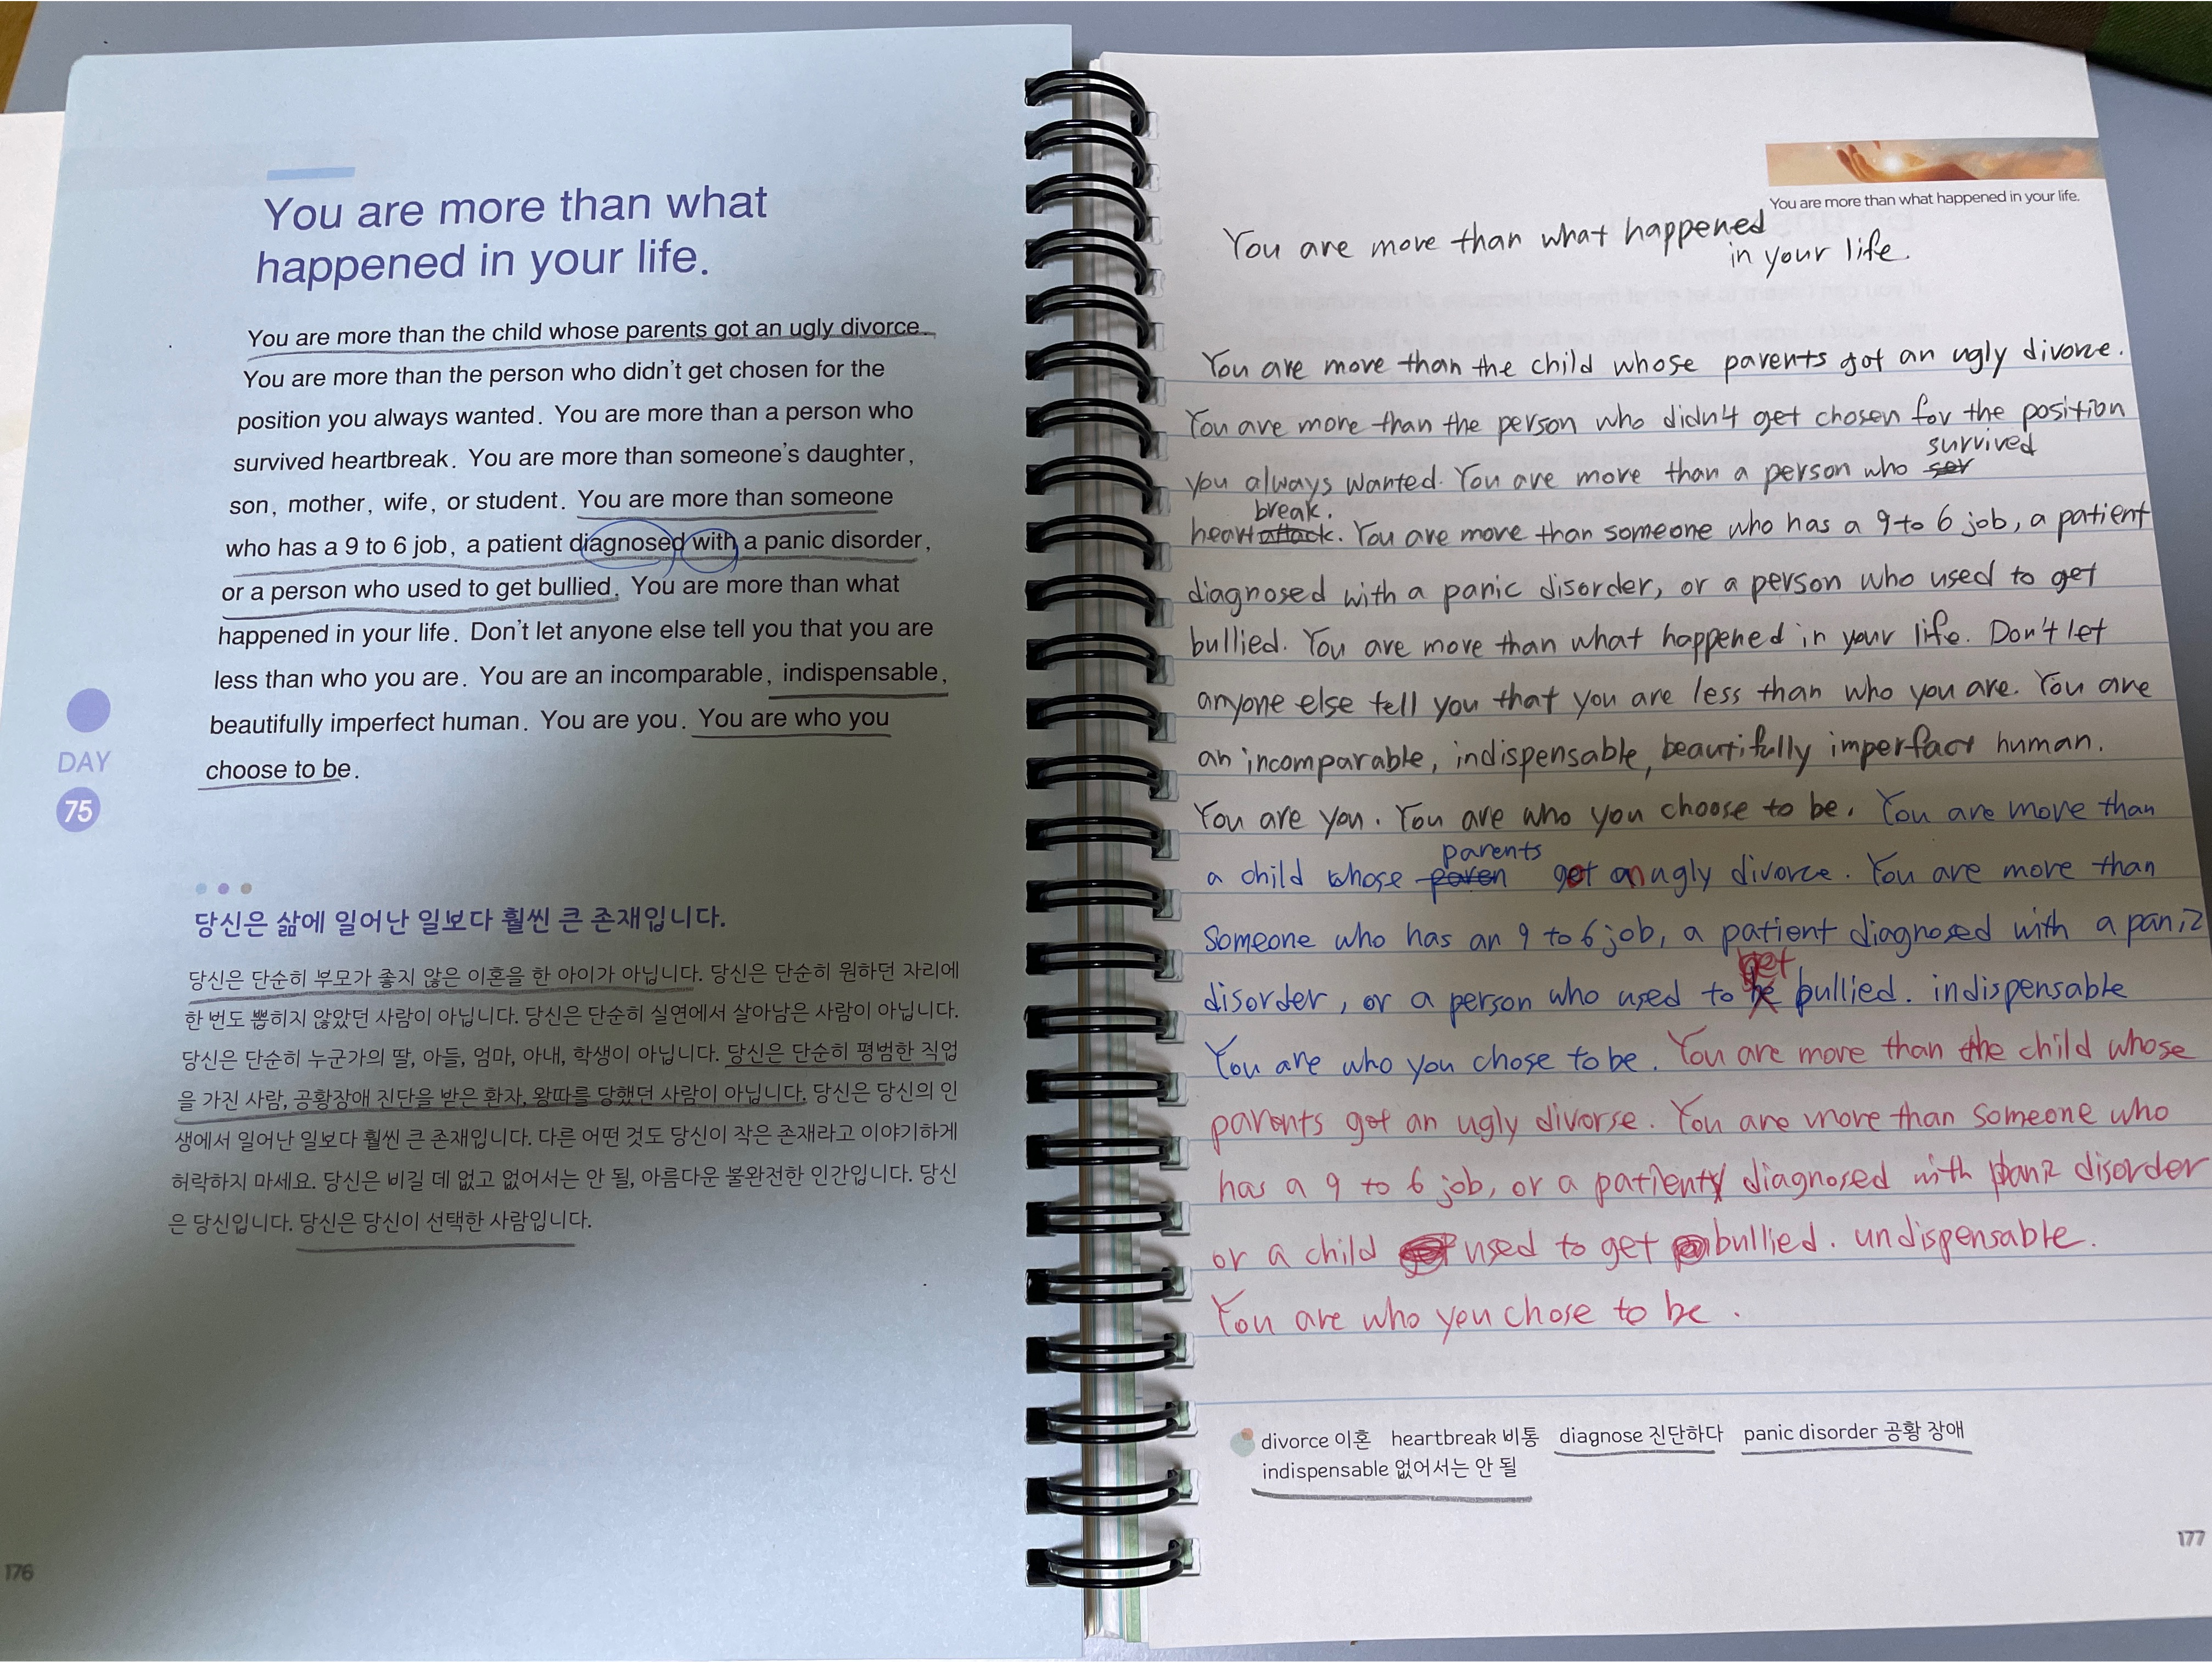 You are more than what
happened in your life.
You are more than the child whose parents got an ugly divorce.
You are more than the person who didn't get chosen for the
position you always wanted. You are more than a person who
survived heartbreak. You are more than someone's daughter,
son, mother, wife, or student. You are more than someone
who has a 9 to 6 job, a patient diagnosed with a panic disorder,
or a person who used to get bullied. You are more than what
happened in your life. Don't let anyone else tell you that you are
less than who you are. You are an incomparable, indispensable,
beautifully imperfect human. You are you. You are who you
choose to be.
DAY
75
당신은 삶에 일어난 일보다 훨씬 큰 존재입니다.
당신은 단순히 부모가 좋지 않은 이혼을 한 아이가 아닙니다. 당신은 단순히 원하던 자리에
한 번도 뽑히지 않았던 사람이 아닙니다. 당신은 단순히 실연에서 살아남은 사람이 아닙니다.
당신은 단순히 누군가의 딸, 아들, 엄마, 아내, 학생이 아닙니다. 당신은 단순히 평범한 직업
을 가진 사람, 공황장애 진단을 받은 환자, 왕따를 당했던 사람이 아닙니다. 당신은 당신의 인
생에서 일어난 일보다 훨씬 큰 존재입니다. 다른 어떤 것도 당신이 작은 존재라고 이야기하게
허락하지 마세요. 당신은 비길 데 없고 없어서는 안 될, 아름다운 불완전한 인간입니다. 당신
은 당신입니다. 당신은 당신이 선택한 사람입니다.
176
You are more than what happened in your life.
You are more than what happened
in your life.
You are more than the child whose parents got an ugly divorce.
You are more than the person who didn't get chosen for the position
survived
you always wanted. You are more than a person who ser
break.
heart attack. You are more than someone who has a 9 to 6 job, a patient
diagnosed with a panic disorder, or a person who used to get
bullied. You are more than what happened in your life. Don't let
anyone else tell you that you are less than who you are. You are
an incomparable, indispensable, beautifully imperfact human.
You are you. You are who you choose to be. You are more than
parents
a child whose paren got an ugly divorce. You are more than
someone who has an 9 to 6 job, a patient diagnosed with a panic
get
disorder, or a person who used to be bullied. indispensable
You are who you chose to be. You are more than the child whose
parents got an ugly divorse. You are more than someone who
has a 9 to 6 job, or a patient diagnosed with panic disorder
or a child used to get bullied. undispensable.
You are who you chose to be.
divorce 이혼 heartbreak 비통 diagnose 진단하다 panic disorder 공황 장애
indispensable 없어서는 안 될
177